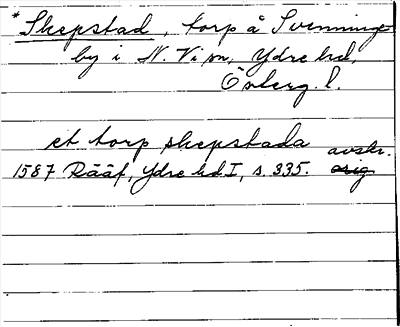 *Skepstad, torp å Svenninge-
by i N. Vi sn, Ydre hd,
Österg. l.
et torp skepstada avskr.
1587 Rääf, Ydre hd I, s. 335. orig